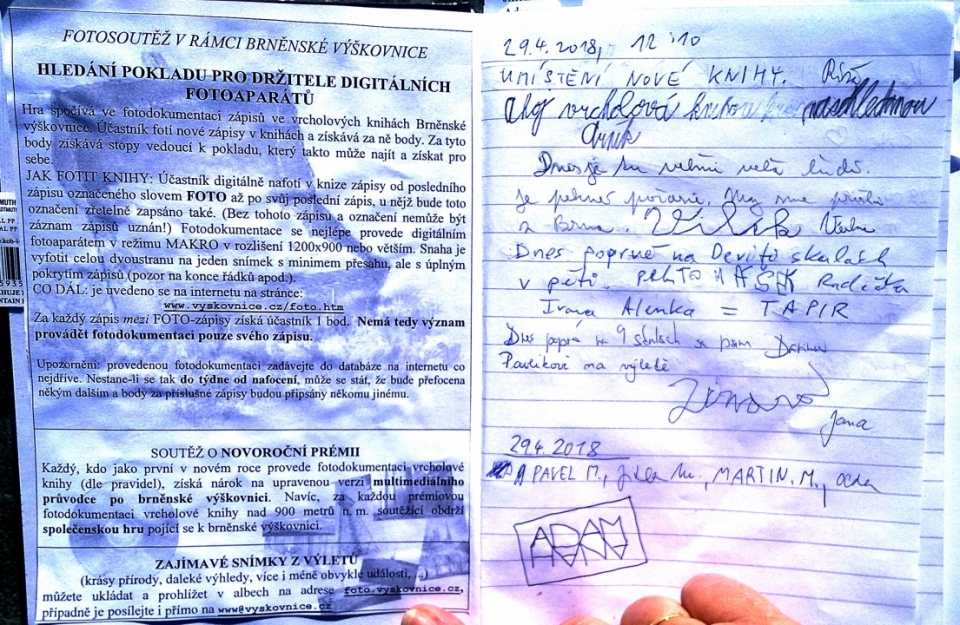 FOTOSOUTĚŽ V RÁMCI BRNĚNSKÉ VÝŠKOVNICE
HLEDÁNÍ POKLADU PRO DRŽITELE DIGITÁLNÍCH
FOTOAPARÁTŮ
Hra spočívá ve fotodokumentaci zápisů ve vrcholových knihách Brněnské
výškovnice. Účastník fotí nové zápisy v knihách a získává za ně body. Za tyto
body získává stopy vedoucí k pokladu, který takto může najít a získat pro
sebe.
JAK FOTIT KNIHY: Účastník digitálně nafotí v knize zápisy od posledního
zápisu označeného slovem FOTO až po svůj poslední zápis, u nějž bude toto
označení zřetelně zapsáno také. (Bez tohoto zápisu a označení nemůže být
záznam zápisů uznán!) Fotodokumentace se nejlépe provede digitálním
fotoaparátem v režimu MAKRO v rozlišení 1200x900 nebo větším. Snaha je
vyfotit celou dvoustranu na jeden snímek s minimem přesahu, ale s úplným
pokrytím zápisů (pozor na konce řádků apod.).
CO DÁL: je uvedeno se na internetu na stránce:
www.vyskovnice.cz/foto.htm
Za každý zápis mezi FOTO-zápisy získá účastník 1 bod. Nemá tedy význam
provádět fotodokumentaci pouze svého zápisu.
Upozornění: provedenou fotodokumentaci zadávejte do databáze na internetu co
nejdříve. Nestane-li se tak do týdne od nafocení, může se stát, že bude přefocena
někým dalším a body za příslušné zápisy budou připsány někomu jinému.
SOUTĚŽ O NOVOROČNÍ PRÉMII
Každý, kdo jako první v novém roce provede fotodokumentaci vrcholové
knihy (dle pravidel), získá nárok na upravenou verzi multimediálního
průvodce po brněnské výškovnici. Navíc, za každou prémiovou
fotodokumentaci vrcholové knihy nad 900 metrů n. m. soutěžící obdrží
společenskou hru pojící se k brněnské výškovnici.
ZAJÍMAVÉ SNÍMKY Z VÝLETŮ
(krásy přírody, daleké výhledy, více i méně obvyklé události, ...)
můžete ukládat a prohlížet v albech na adrese foto.vyskovnice.cz,
případně je posílejte i přímo na www@vyskovnice.cz
29.4.2018, 12:10
UMÍSTĚNÍ NOVÉ KNIHY.
Ahoj vrcholová
Dnes je tu velmi
z Brna.
Dnes poprvé na Devíti skalách
v pěti. Radečka
Ivana Alenka = TAPIR
Dnes 9
na výletě
Jana
29.4.2018
PAVEL M., MARTIN. M.,
ADAM